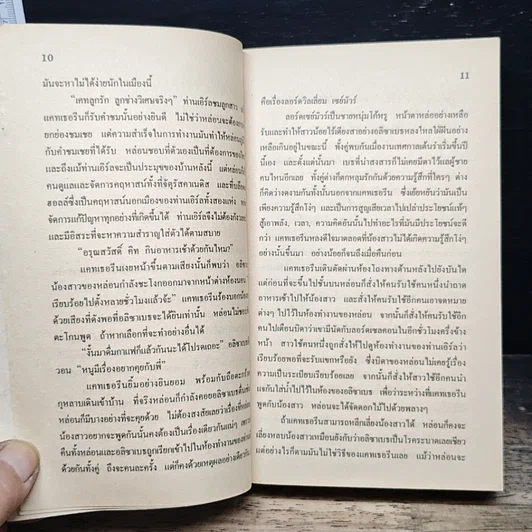 10
มันจะหาไม่ได้ง่ายนักในเมืองนี้
"เคทลูกรัก ลูกช่างวิเศษจริงๆ" ท่านเอิร์ลชมลูกสาว
แคทเธอรีนก็รับคำชมนั้นอย่างยินดี ไม่ใช่ว่าหล่อนจะต้องการ
ยกย่องชมเชย แต่ความสำเร็จในการทำงานมันทำให้หล่อนภูมิ
กับคำชมเชยที่ได้รับ หล่อนชอบที่ตัวเองเป็นที่ต้องการของคน
นี้ และถึงแม้ท่านเอิร์ลจะเป็นประมุขของบ้านหลังนี้
คนดูแลและจัดการคฤหาสน์ทั้งที่จัตุรัสคาเวนดิส และที่บลิ
ฮอลล์ซึ่งเป็นคฤหาสน์นอกเมืองของท่านเอิร์ลทั้งสองแห่ง
จัดการแก้ปัญหาทุกอย่างที่เกิดขึ้นได้ ท่านเอิร์ลจึงไม่ต้องกังวล
และมีอิสระที่จะหาความสำราญใส่ตัวได้ตามสบาย
"อรุณสวัสดิ์ คิท กินอาหารเช้าด้วยกันไหม?"
แคทเธอรีนเงยหน้าขึ้นตามเสียงนั้นก็พบว่า
น้องสาวของหล่อนกำลังชะโงกออกมาจากหน้าต่างห้องนอน
เรียบร้อยไปตั้งหลายชั่วโมงแล้วจ้ะ" แคทเธอรีนร้องบอกน้อง
ด้วยเสียงที่ดังพอที่อลิซาเบธจะได้ยินเท่านั้น หล่อนไม่ชอบ
ตะโกนพูด ถ้าหากเลือกที่จะทำอย่างอื่นได้
"งั้นมาดื่มกาแฟก็แล้วกันนะได้โปรดเถอะ" อลิซาเบธ
วอน "หนูมีเรื่องอยากคุยกับพี่"
แคทเธอรีนยิ้มอย่างยินยอม พร้อมกับถือตะกร้า
กุหลาบเดินเข้าบ้าน ที่จริงหล่อนก็กำลังคอยอลิซาเบธตื่นขึ้น
หล่อนก็มีบางอย่างที่จะคุยด้วย ไม่ต้องสงสัยเลยว่าเรื่องที่หล่อน
น้องสาวอยากจะพูดกันนั้นคงต้องเป็นเรื่องเดียวกันแน่ๆ
คืนทั้งหล่อนและอลิซาเบธถูกเรียกเข้าไปในห้องทำงานของท่าน
ด้วยกันทั้งคู่ ถึงจะคนละครั้ง แต่ก็คงด้วยเหตุผลอย่างเดียวกัน
11
คือเรื่องลอร์ดวิลเลี่ยม เซย์มัวร์
ลอร์ดเซย์มัวร์เป็นชายหนุ่มโก้หรู หน้าตาหล่ออย่างเหลือ
รับและทำให้สาวน้อยไร้เดียงสาอย่างอลิซาเบธหลงใหลใฝ่ฝันอย่าง
เหลือเกินอยู่ในขณะนี้ ทั้งคู่พบกันเมื่องานเทศกาลเต้นรำเริ่มขึ้นปี
นี้เอง และตั้งแต่นั้นมา เบธที่น่าสงสารก็ไม่เคยมีตาไว้แลผู้ชาย
คนไหนอีกเลย ทั้งคู่ต่างก็ตกหลุมรักกันด้วยความรู้สึกที่ใครๆ ต่าง
ก็คิดว่างดงามกันทั้งนั้นนอกจากแคทเธอรีน ซึ่งเย้ยหยันว่ามันเป็น
เพียงความรู้สึกโง่ๆ และเป็นการสูญเสียเวลาไปเปล่าประโยชน์แท้ๆ
สู้เอาพลัง, เวลา, ความคิดอันนั้นไปทำอะไรที่มันมีประโยชน์จะดี
กว่า แคทเธอรีนหลงดีใจมาตลอดที่น้องสาวไม่ได้เกิดความรู้สึกโง่ๆ
อย่างนั้นขึ้นมา อย่างน้อยก็จนถึงเมื่อคืนก่อน
แคทเธอรีนเดินตัดผ่านห้องโถงทางด้านหลังไปยังบันได
แต่ก่อนที่จะขึ้นไปชั้นบนหล่อนก็สั่งให้คนรับใช้คนหนึ่งนำถาด
อาหารเช้าไปให้น้องสาว และสั่งให้คนรับใช้อีกคนเอาจดหมาย
ต่างๆ ไปไว้ในห้องทำงานของหล่อน จากนั้นก็สั่งให้คนรับใช้อีก
คนไปเตือนบิดาว่าเขามีนัดกับลอร์ดเซลคอนในอีกชั่วโมงครึ่งข้าง
หน้า สาวใช้คนหนึ่งถูกสั่งให้ไปดูห้องทำงานของท่านเอิร์ลว่า
เรียบร้อยพอที่จะรับแขกหรือยัง ซึ่งบิดาของหล่อนไม่เคยรู้เรื่อง
ความเป็นระเบียบเรียบร้อยเลย จากนั้นก็สั่งให้สาวใช้อีกคนนำ
แจกันใส่น้ำไปไว้ในห้องของอลิซาเบธ เพื่อว่าระหว่างที่แคทเธอรีน
พูดกับน้องสาว หล่อนจะได้จัดดอกไม้ไปด้วยพลางๆ
ถ้าแคทเธอรีนสามารถหลีกเลี่ยงน้องสาวได้ หล่อนก็คงจะ
เลี่ยงหลบน้องสาวเหมือนยังกับว่าอลิซาเบธเป็นโรคระบาดเลยเชียว
แต่อย่างไรก็ตามมันไม่ใช่วิธีของแคทเธอรีนเลย แม้ว่าหล่อนจะ